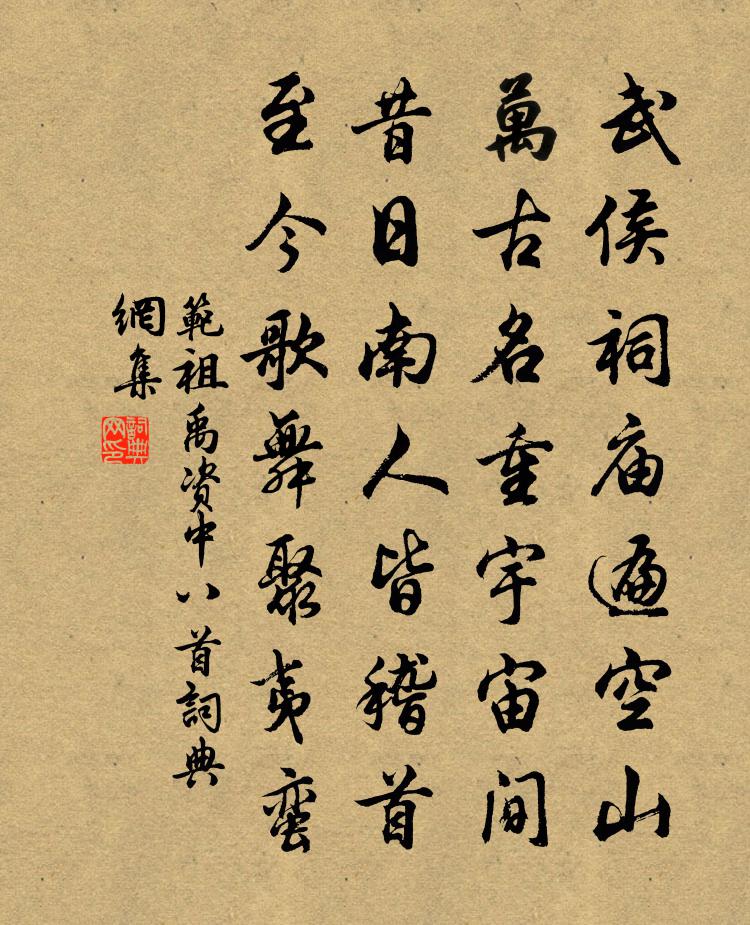 武侯祠庙遍空山
萬古名重宇宙間
昔日南人皆稽首
至今歌舞聚夷蛮
範祖禹资中八首詞典
網集
詞典
网印